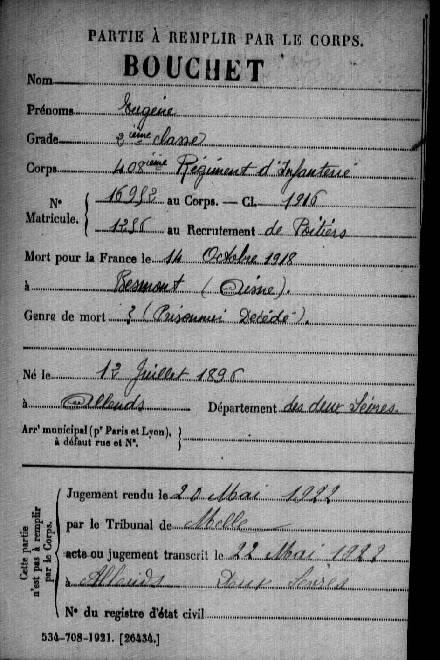 PARTIE À REMPLIR PAR LE CORPS.
BOUCHET
Nom
Prénoms Eugène
Grade 2ième classe
Corps 408ième Régiment d'Infanterie
N° Matricule. { 16952 au Corps. — Cl. 1916
1256 au Recrutement de Poitiers
Mort pour la France le 14 Octobre 1918
à Besmont (Aisne).
Genre de mort ? (Prisonnier Décédé).
Né le 12 Juillet 1896
à Alleuds Département des deux Sèvres.
Arrt municipal (pr Paris et Lyon), }
à défaut rue et N°.
Cette partie n'est pas à remplir par le Corps.
Jugement rendu le 20 Mai 1922
par le Tribunal de Melle
acte ou jugement transcrit le 22 Mai 1922
à Alleuds Deux Sèvres
N° du registre d'état civil
534-708-1921. [26434.]